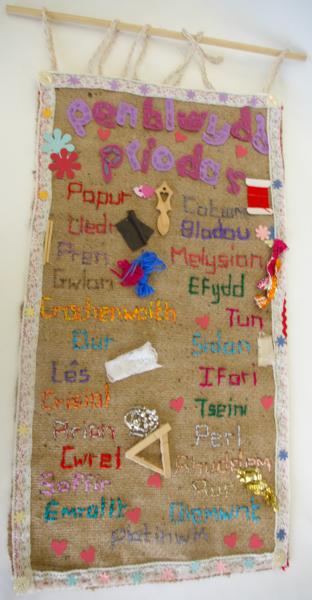 penblwydd
priodas
Papur Cotwm
Lledr Blodau
Pren Melysion
Gwlan Efydd
Crochenwaith
Tun
Dur Sidan
Lês Ifori
Crisial Tseini
Arian Perl
Cwrel
Saffir Aur
Emrallt Diemwnt
Platinwm